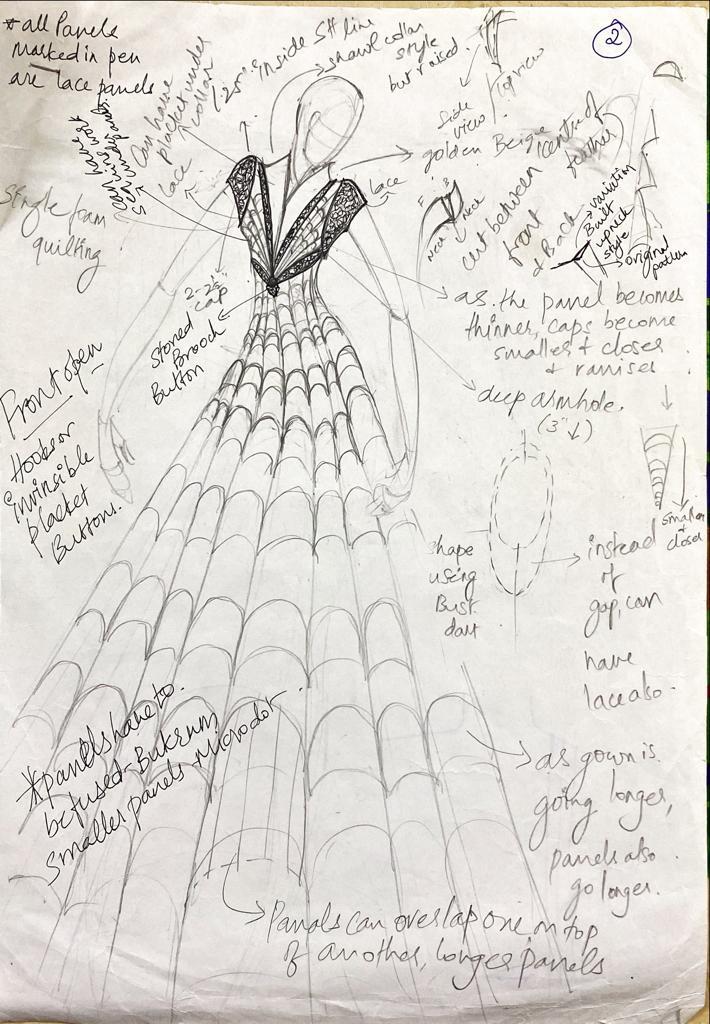 *all Panels
marked in pen
are lace panels
can have
placket under
collar
(.25"..inside SH line
shawl collar
style
but raised.
2
Top view
Side
view
golden Beige
centre of
feather
lace
lace
Single foam
quilting
neck
neck
cut between
front
& Back
variation
Built
up neck
style
original
pattern
2-2.5"
cap
Stoned
Brooch
Button
as the panel becomes
thinner, caps become
smaller & closer
deep armhole.
(3"↓)
Front open
Hooks or
invinsible
placket
Buttons.
smaller
&
closer
shape
using
Bust
dart
instead
of
gap, can
have
lace also.
*panels have to
be fused - Bukrum
smaller panels - Microdot.
as gown is
going longer,
panels also
go longer.
Panals can overlap one on top
of another, longer panels